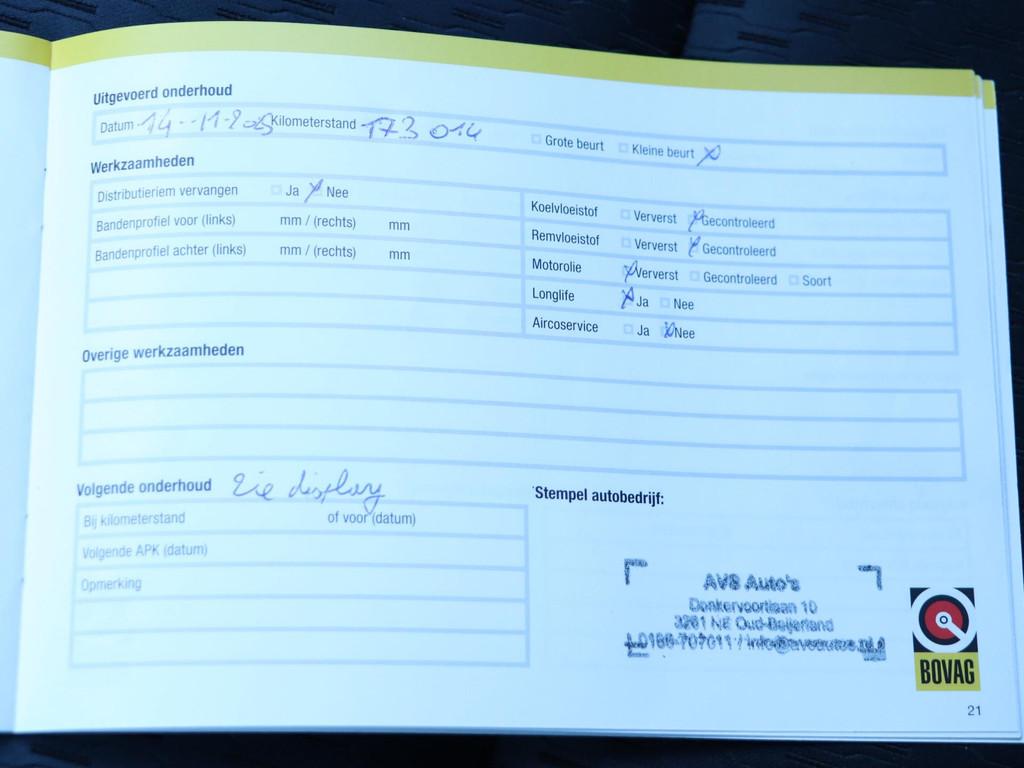 Uitgevoerd onderhoud
Datum 14-11-2025 Kilometerstand 173 014 Grote beurt Kleine beurt
Werkzaamheden
Distributieriem vervangen Ja Nee
Bandenprofiel voor (links) mm / (rechts) mm
Bandenprofiel achter (links) mm / (rechts) mm
Koelvloeistof Ververst Gecontroleerd
Remvloeistof Ververst Gecontroleerd
Motorolie Ververst Gecontroleerd Soort
Longlife Ja Nee
Aircoservice Ja Nee
Overige werkzaamheden
Volgende onderhoud Zie display
Bij kilometerstand of voor (datum)
Volgende APK (datum)
Opmerking
Stempel autobedrijf:
AVS Auto's
Donkervoortlaan 10
3261 NE Oud-Beijerland
0186-707011 / info@avsautos.nl
BOVAG
21